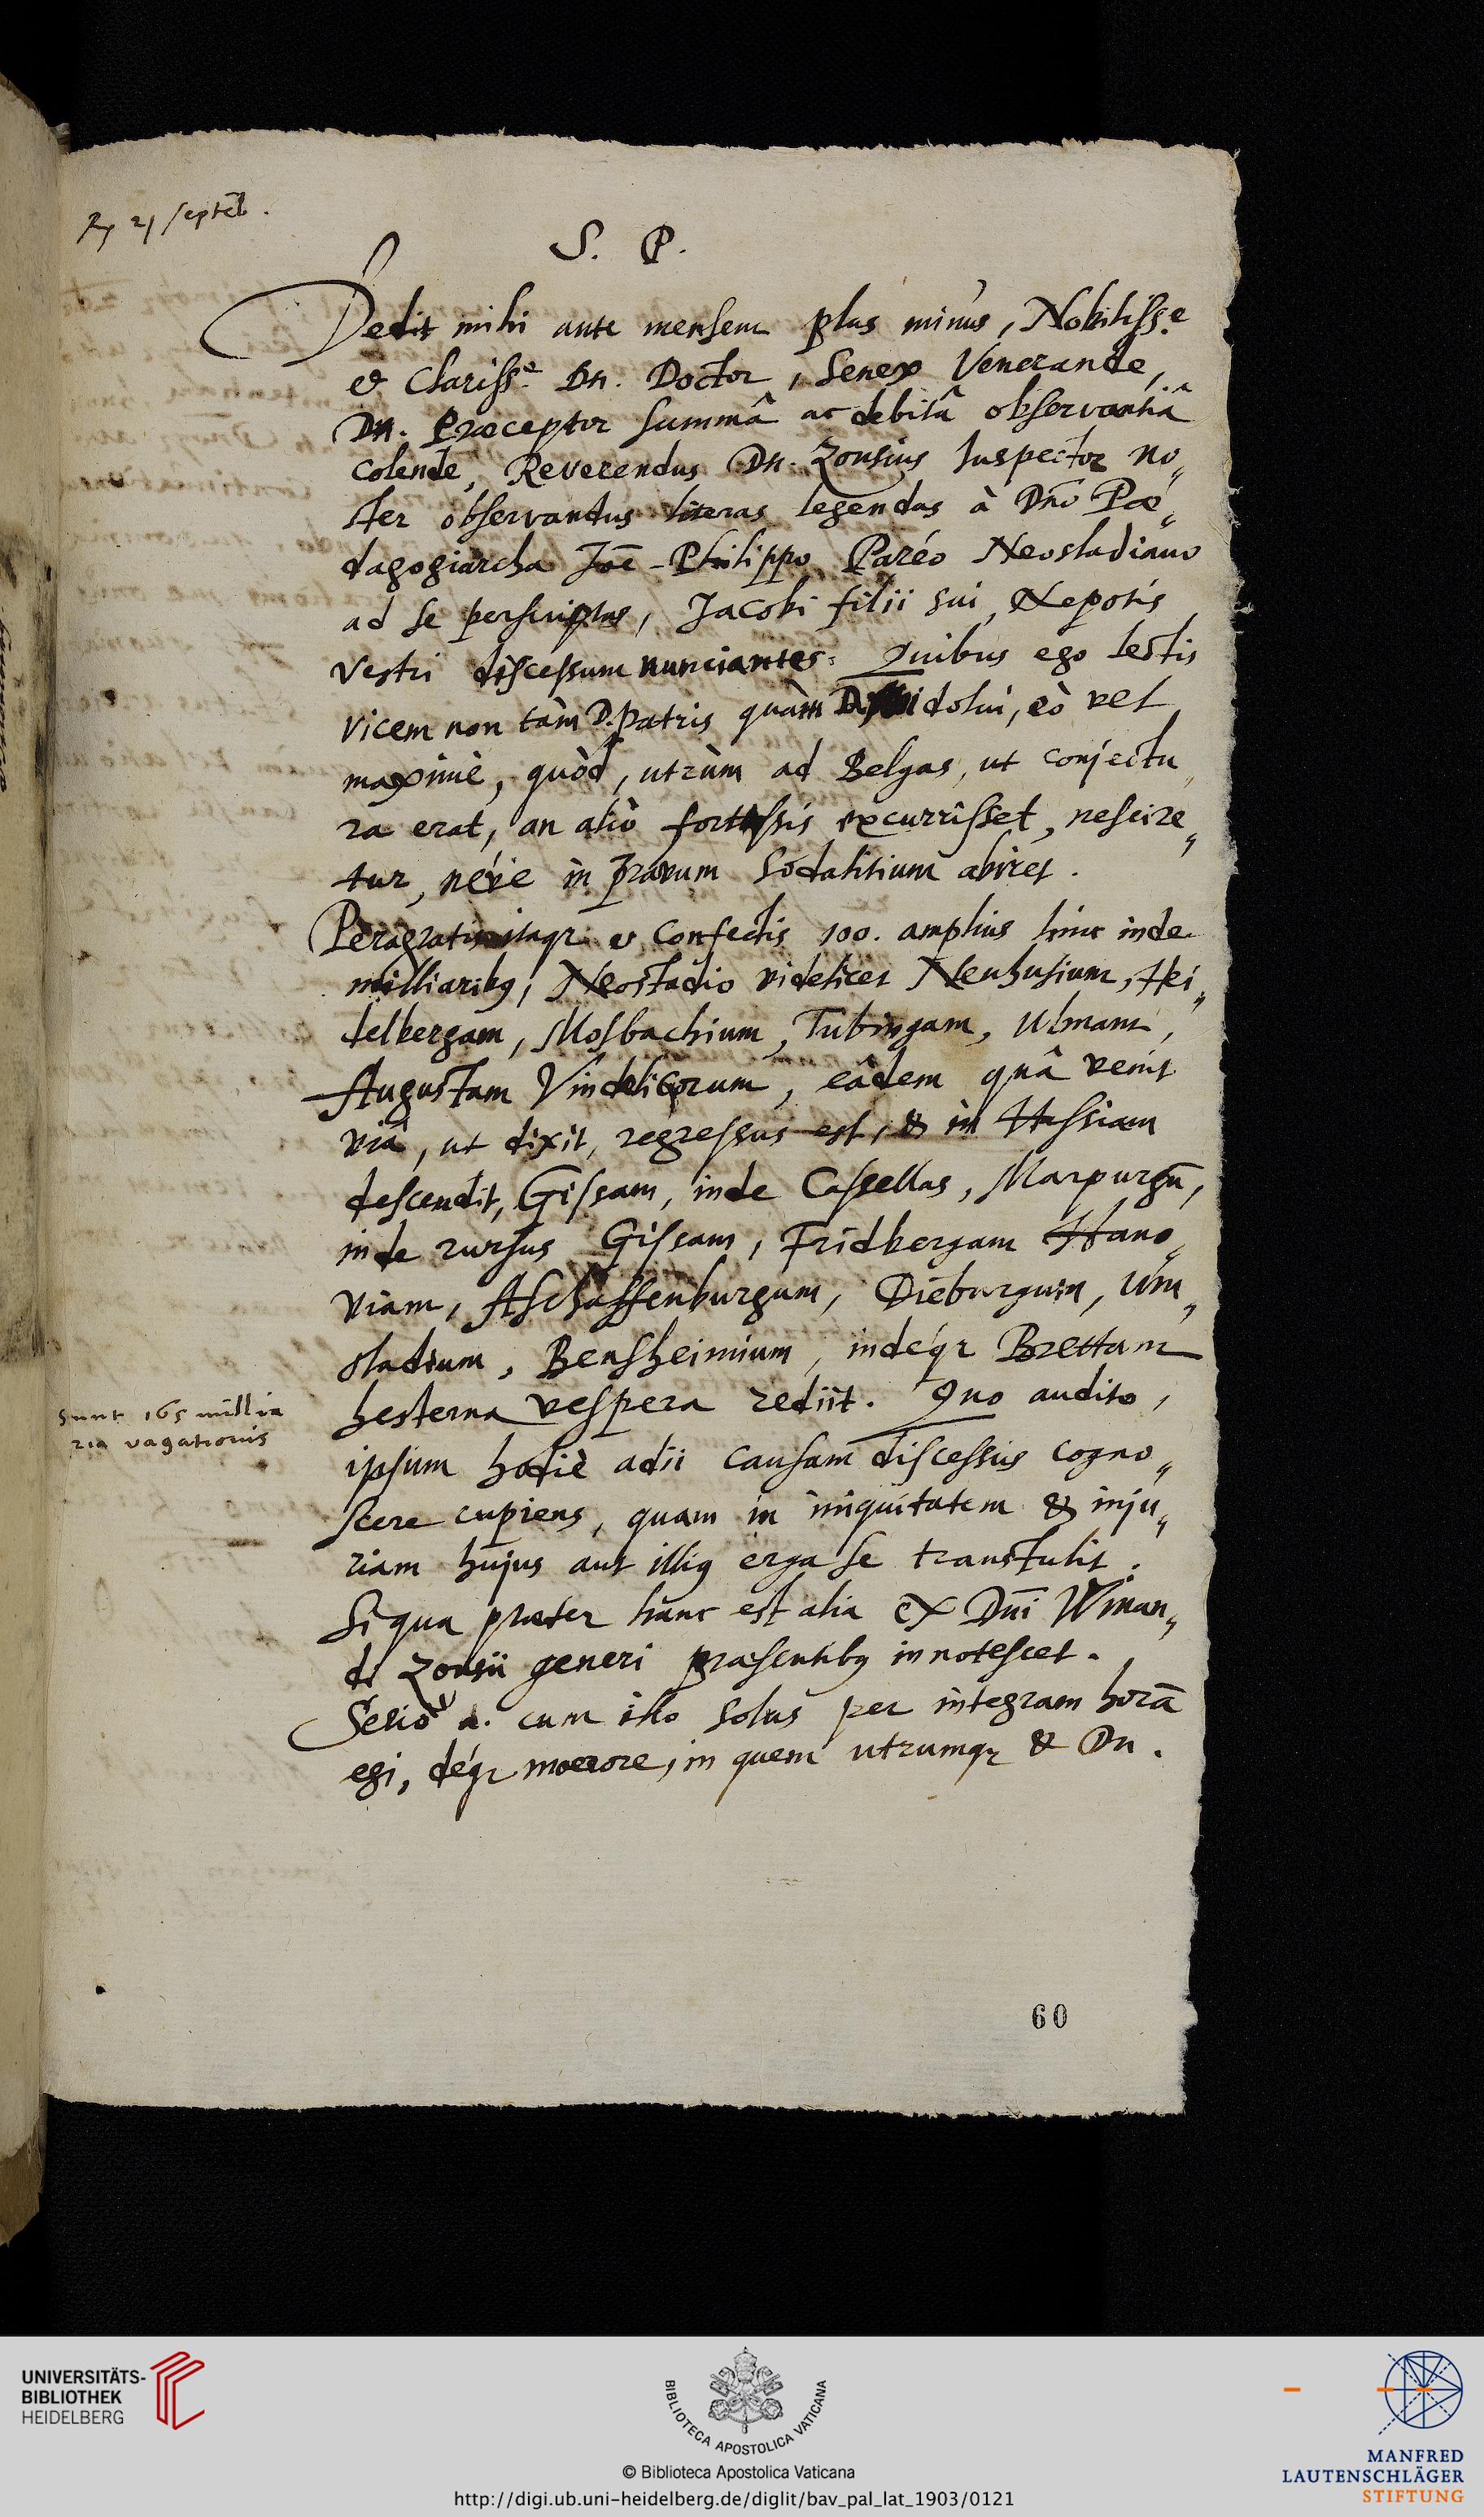 R 21 septēb.
S. P.
Dedit mihi ante mensem plus minus, Nobiliss.e
& Clariss.e Dn. Doctor, Senex Venerande,
Dn. Præceptor summâ ac debitâ observantiâ
colende, Reverendus Dn. Zonsius Inspector no„
ster observandus literas legendas à Dnō Pæ„
dagogiarcha Joē-Philippo Paréo Neostadiano
ad se perscriptas, Jacobi filii sui, Nepotis
vestri discessum nunciantes. Quibus ego lectis
vicem non tàm D. Patris quàm dolui, eò vel
maximè, quòd, utrùm ad Belgas, ut conjectu„
ra erat, an aliò fortassis excurrisset, nescire„
tur, néve in pravum sodalitium abiret.
Peragratis itaqꝫ & confectis 100. amplius hinc inde
milliaribꝰ, Neostadio videlicet Neuhusium, Hei„
delbergam, Mosbachium, Tubingam, Ulmam,
Augustam Vindelicorum, eâdem quâ venit
viâ, ut dixit, regressus est, & in Hassiam
descendit, Gissam, inde Cassellas, Marpurgū,
inde rursus Gissam, Fridbergam Hano„
viam, Aschaffenburgum, Dieburgum, Um„
stadium, Bensheimium, indéqꝫ Brettam
hesterna vespera rediit. Quo audito,
sunt 165 millia
ria vagationis
ipsum hodiè adii causam discessus cogno„
scere cupiens, quam in iniquitatem & inju„
riam hujus aut illiꝰ erga se transtulit.
Si qua præter hanc est alia ex Dnī Winan„
di Zonsii generi præsentibꝰ innotescet.
Seriò a. cum illo solus per integram horā
egi, déqꝫ moerore, in quem utrumqꝫ & Dn.
60
UNIVERSITÄTS-
BIBLIOTHEK
HEIDELBERG
BIBLIOTECA APOSTOLICA VATICANA
© Biblioteca Apostolica Vaticana
http://digi.ub.uni-heidelberg.de/diglit/bav_pal_lat_1903/0121
MANFRED
LAUTENSCHLÄGER
STIFTUNG